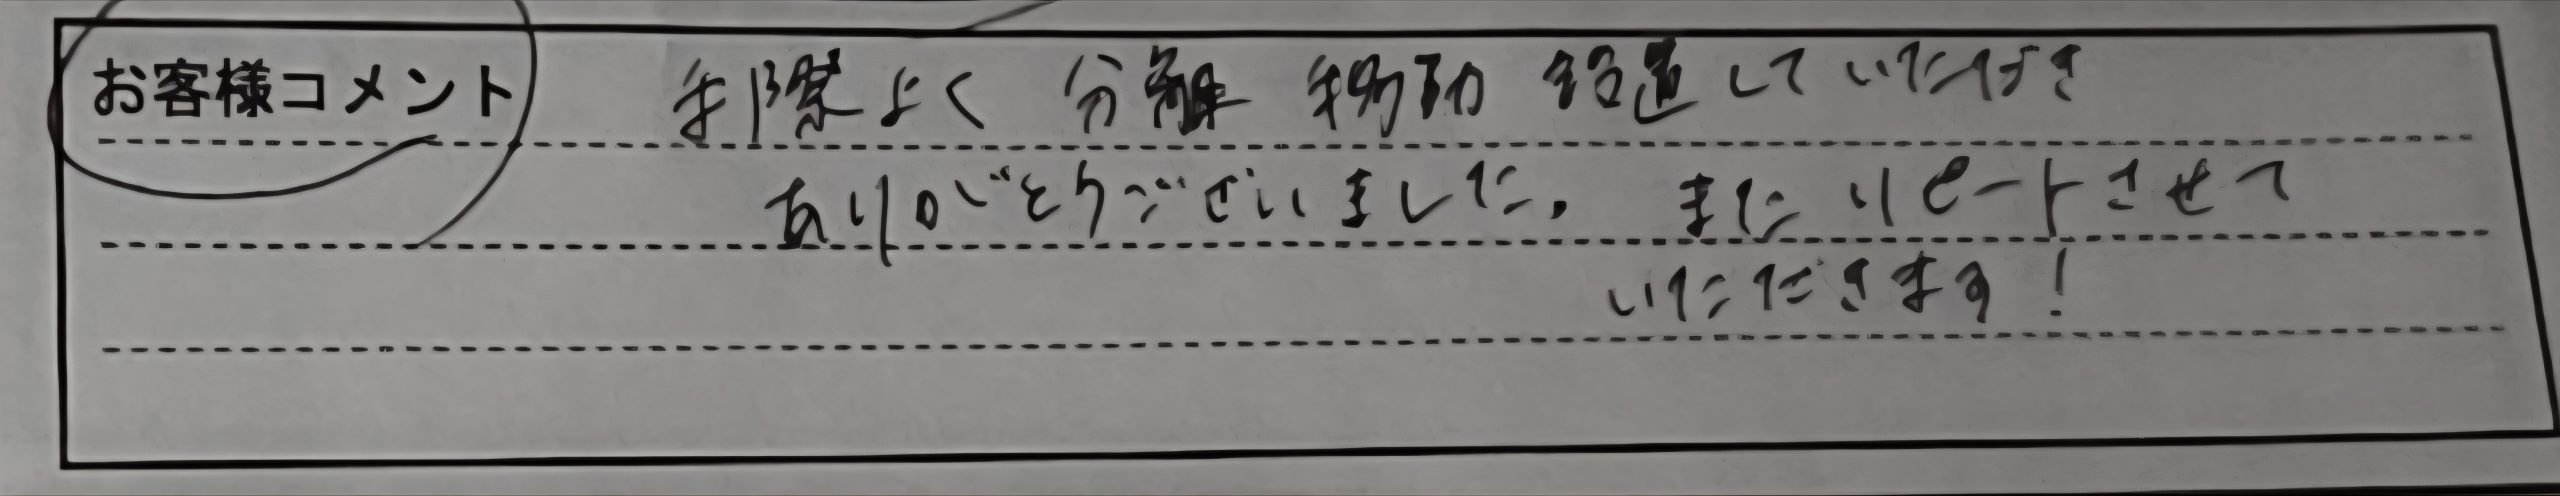 お客様コメント 手際よく 分離 移動 設置していただき
ありがとうございました。 またリピートさせて
いただきます!